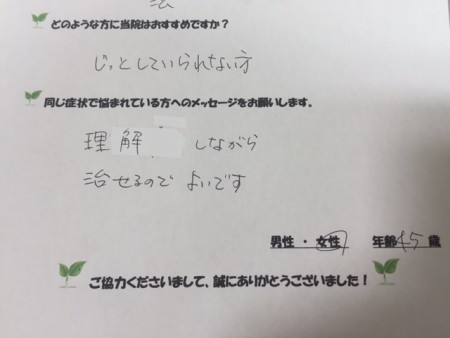 法
どのような方に当院はおすすめですか？
じっとしていられない方
同じ症状で悩まれている方へのメッセージをお願いします。
理解 しながら
治せるので よいです
男性 ・ 女性 年齢 45 歳
ご協力くださいまして、誠にありがとうございました！